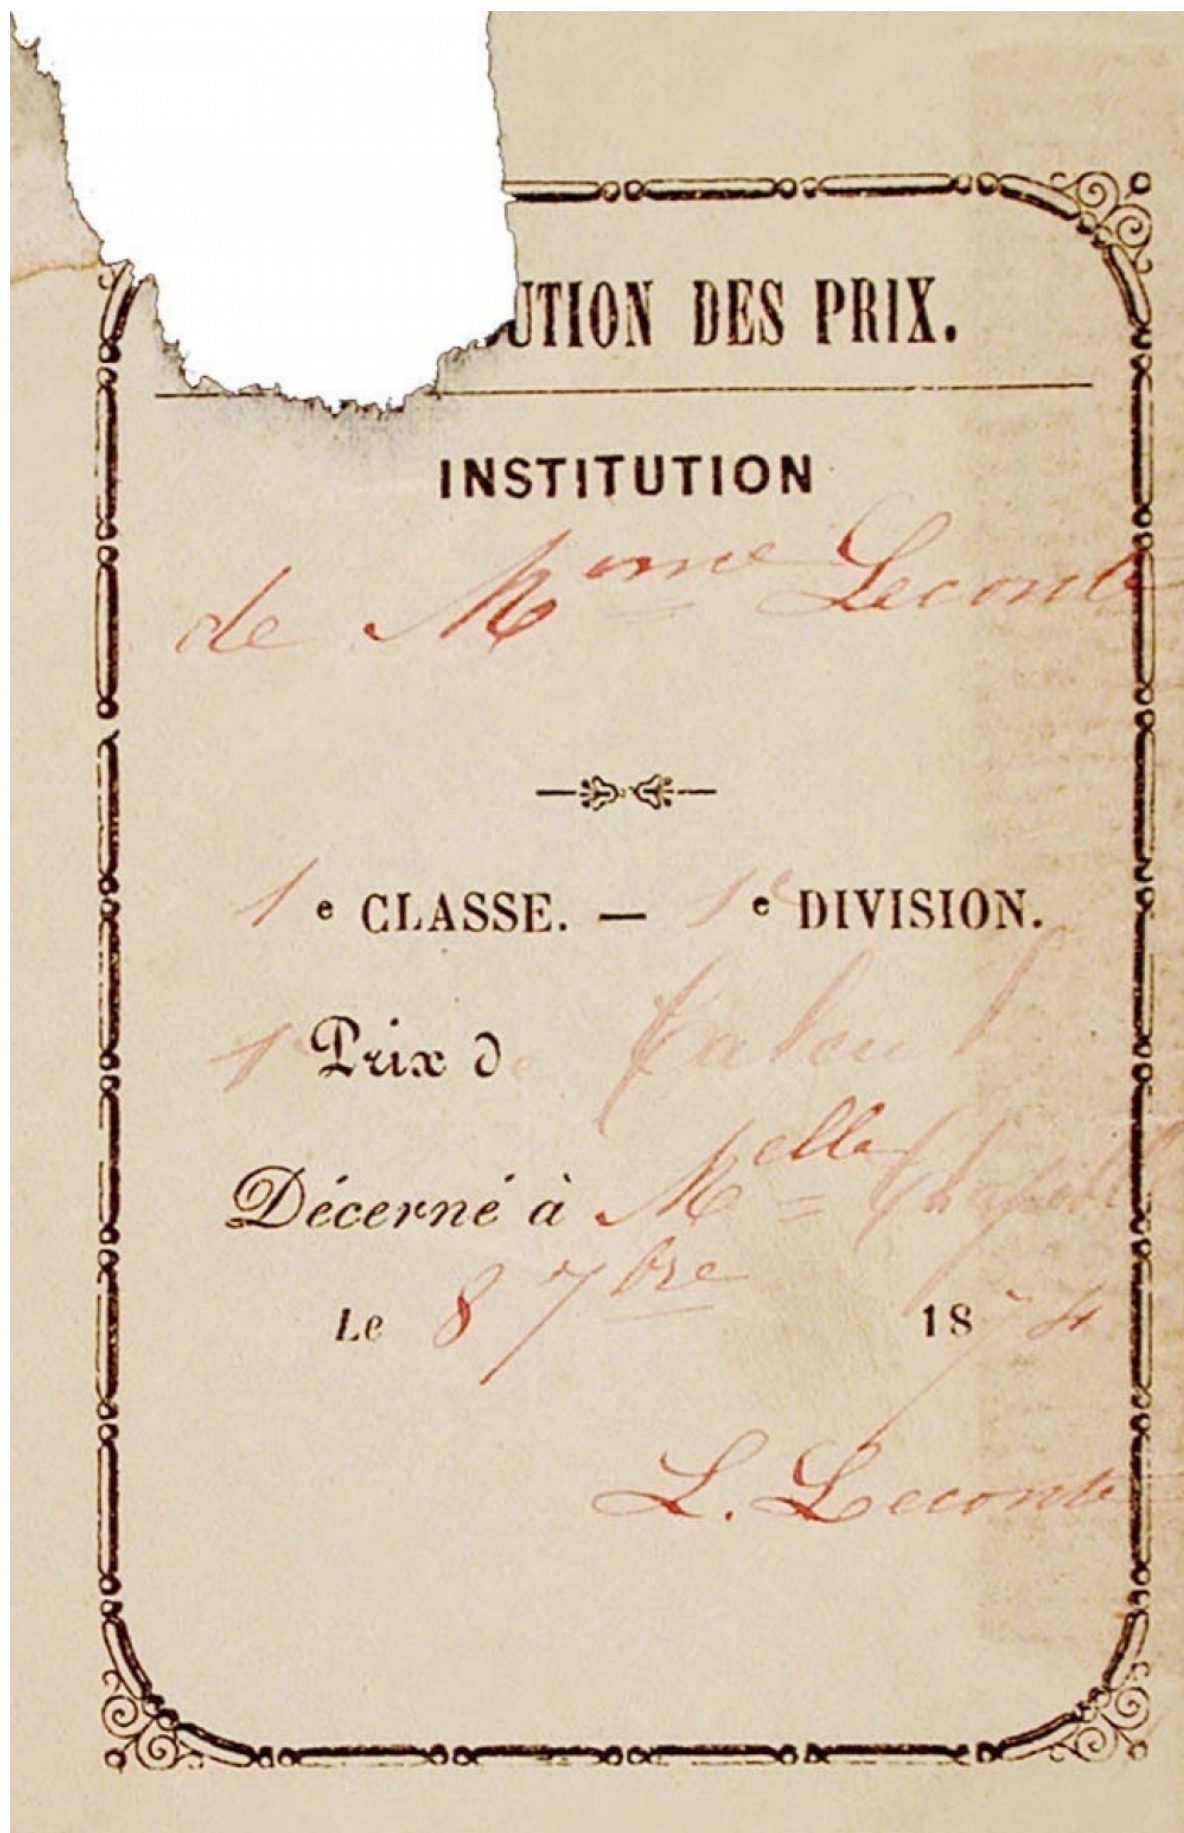 UTION DES PRIX.
INSTITUTION
de Mme Leconte
1e CLASSE. — 1e DIVISION.
1er Prix de Calcul
Décerné à Melle
Le 8 7bre 1874
L. Leconte